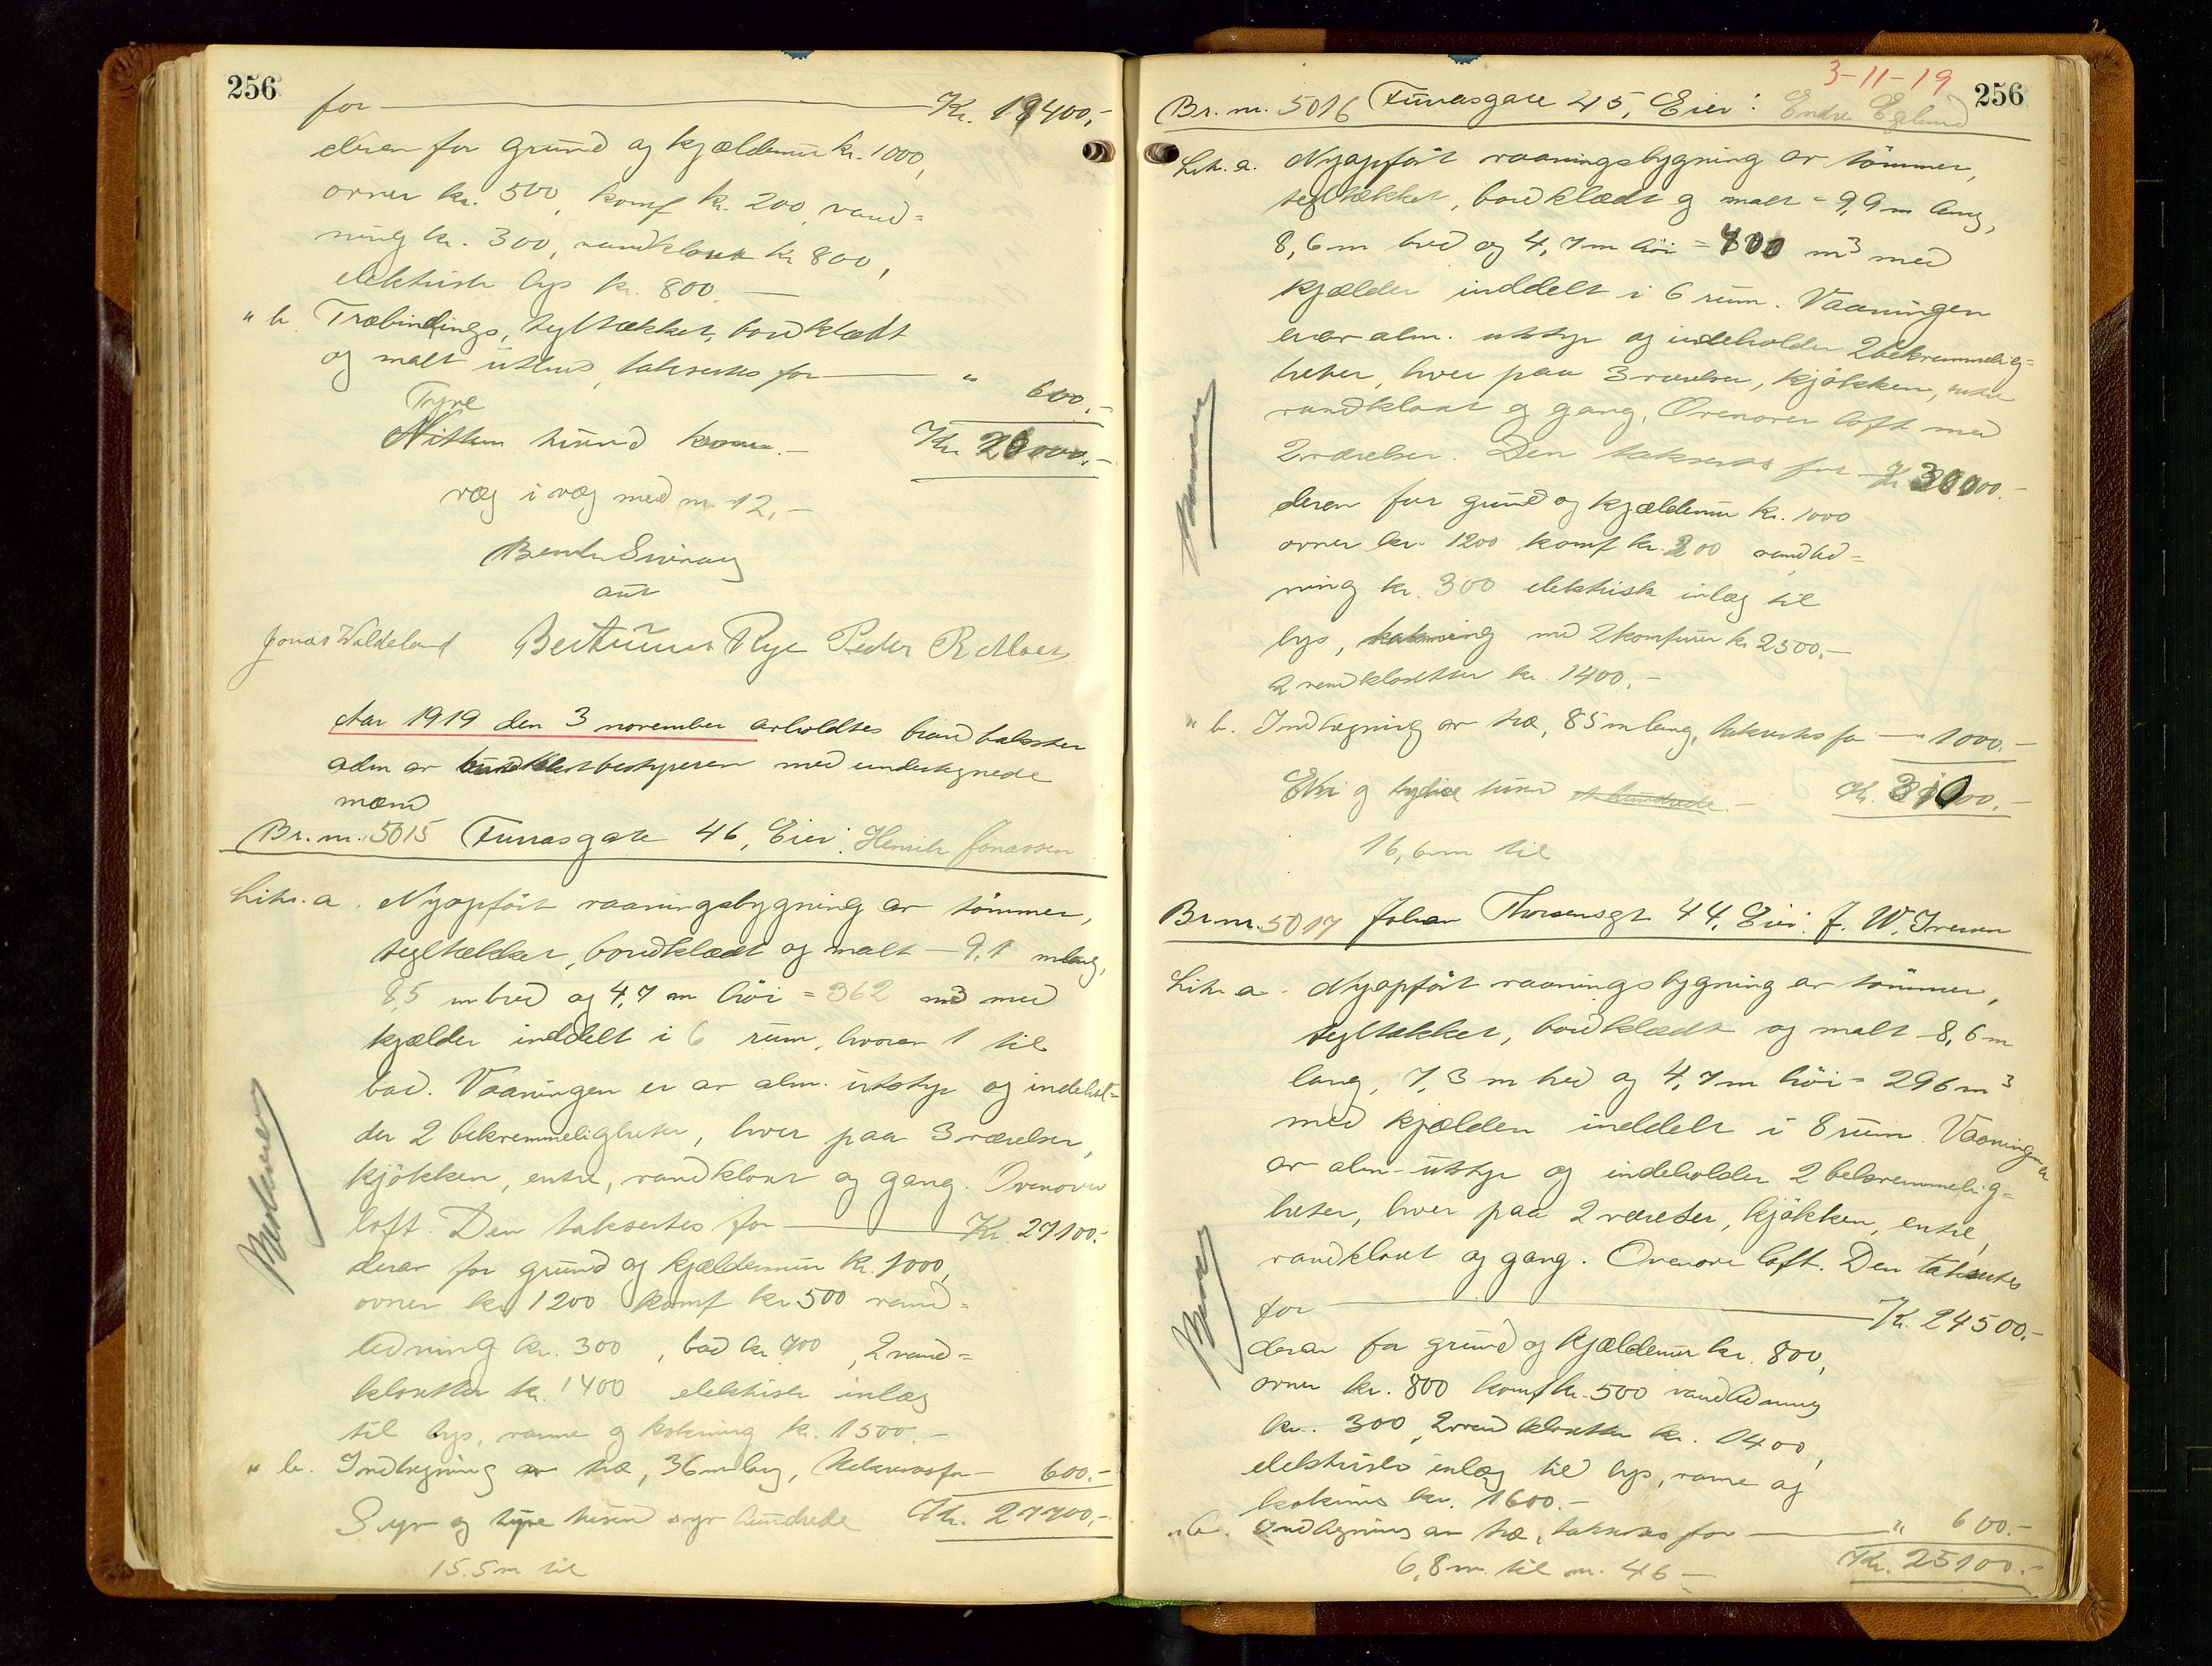 256
for Kr. 19400,-
derav for grund og kjældermur kr. 1000,
ovner kr. 500, komf kr. 200, vand=
ning kr. 300, vandklosett kr 800,
elektrisk lys kr. 800.
" b. Træbindings, tegltækket, bordklædt
og malt uthus, takseres for " 600.-
Tyve
tusind kroner.- Kr. 20000.-
væg i væg med nr 12.-
Jonas Waldeland Peder R
Aar 1919 den 3 november avholdtes brandtakster
adm av bestyreren med undertegnede
mænd
Br. nr. 5015 Furrasgate 46, Eier: Henrik Jonassen
Litr. a. Nyopført vaaningsbygning av tømmer,
tegltækket, bordklædt og malt - 9,1 m lang,
8,5 m bred og 4,7 m høi = 362 m3 med
kjælder inddelt i 6 rum, hvorav 1 til
bad. Vaaningen er av alm. utstyr og indehol=
der 2 bekvemmeligheter, hver paa 3 værelser,
kjøkken, entre, vandklosett og gang. Ovenover
loft. Den takseres for Kr. 27100.-
derav for grund og kjældermur kr. 1000,
ovner kr 1200 komf kr 500 vand=
ledning kr. 300, bad kr 700, 2 vand=
klosetter kr. 1400 elektrisk inlæg
til lys, varme og kokning kr. 1500.-
" b. Indhegning av træ, 36 m lang, takseres for 600.-
Syv og tyve tusen syv hundrede Kr. 27700,-
15.5m til
3-11-19
256
Br. nr. 5016 Furrasgate 45, Eier: Endre Egelund
Litr. a. Nyopført vaaningsbygning av tømmer,
tegltækket, bordklædt og malt - 9,9 m lang,
8,6 m bred og 4,7 m høi = 400 m3 med
kjælder inddelt i 6 rum. Vaaningen
er av alm. utstyr og indeholder 2 bekvemmelig=
heter, hver paa 3 værelser, kjøkken, entre
vandklosett og gang. Ovenover loft med
2 værelser. Den takseres for Kr 30000.-
derav for grund og kjældermur kr. 1000
ovner kr. 1200 komf kr. 200 vandled=
ning kr. 300 elektrisk inlæg til
lys, kokning med 2 komfurer kr 2500.-
2 vandklosetter kr. 1400.-
" b. Indhegning av træ, 85 m lang, takseres for " 1000.-
Et og tredive tusen et hundrede.- Kr. 31000.-
16,6 m til
Br. nr. 5017 Johan Thorsensgt 44. Eier: J. W. Iversen
Litr. a. Nyopført vaaningsbygning av tømmer,
tegltækket, bordklædt og malt - 8,6 m
lang, 7,3 m bred og 4,7 m høi = 296 m3
med kjælder inddelt i 8 rum. Vaaningen er
av alm. utstyr og indeholder 2 bekvemmelig=
heter, hver paa 2 værelser, kjøkken, entre,
vandklosett og gang. Ovenover loft. Den takseres
for Kr. 24500.-
derav for grund og kjældermur kr. 800,
ovner kr. 800 komf kr. 500 vandledning
kr. 300, 2 vandklosetter kr. 1400,
elektrisk inlæg til lys, varme og
kokning kr. 1600.-
" b. Indhegning av træ, takseres for " 600.-
Kr. 25100.-
6,8 m til nr. 46 -